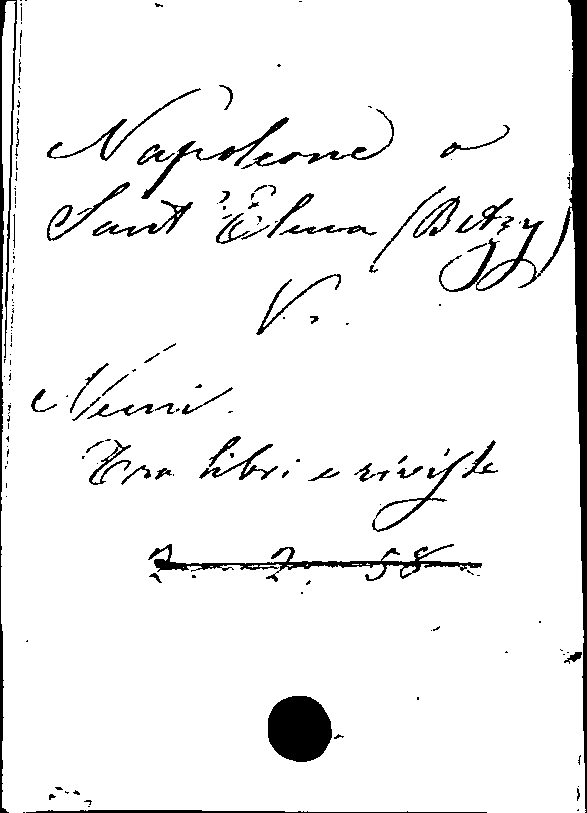 Napoleone a
Sant'Elena (Betzy)
V.
Nemi.
Tra libri e riviste
2. 2. 58